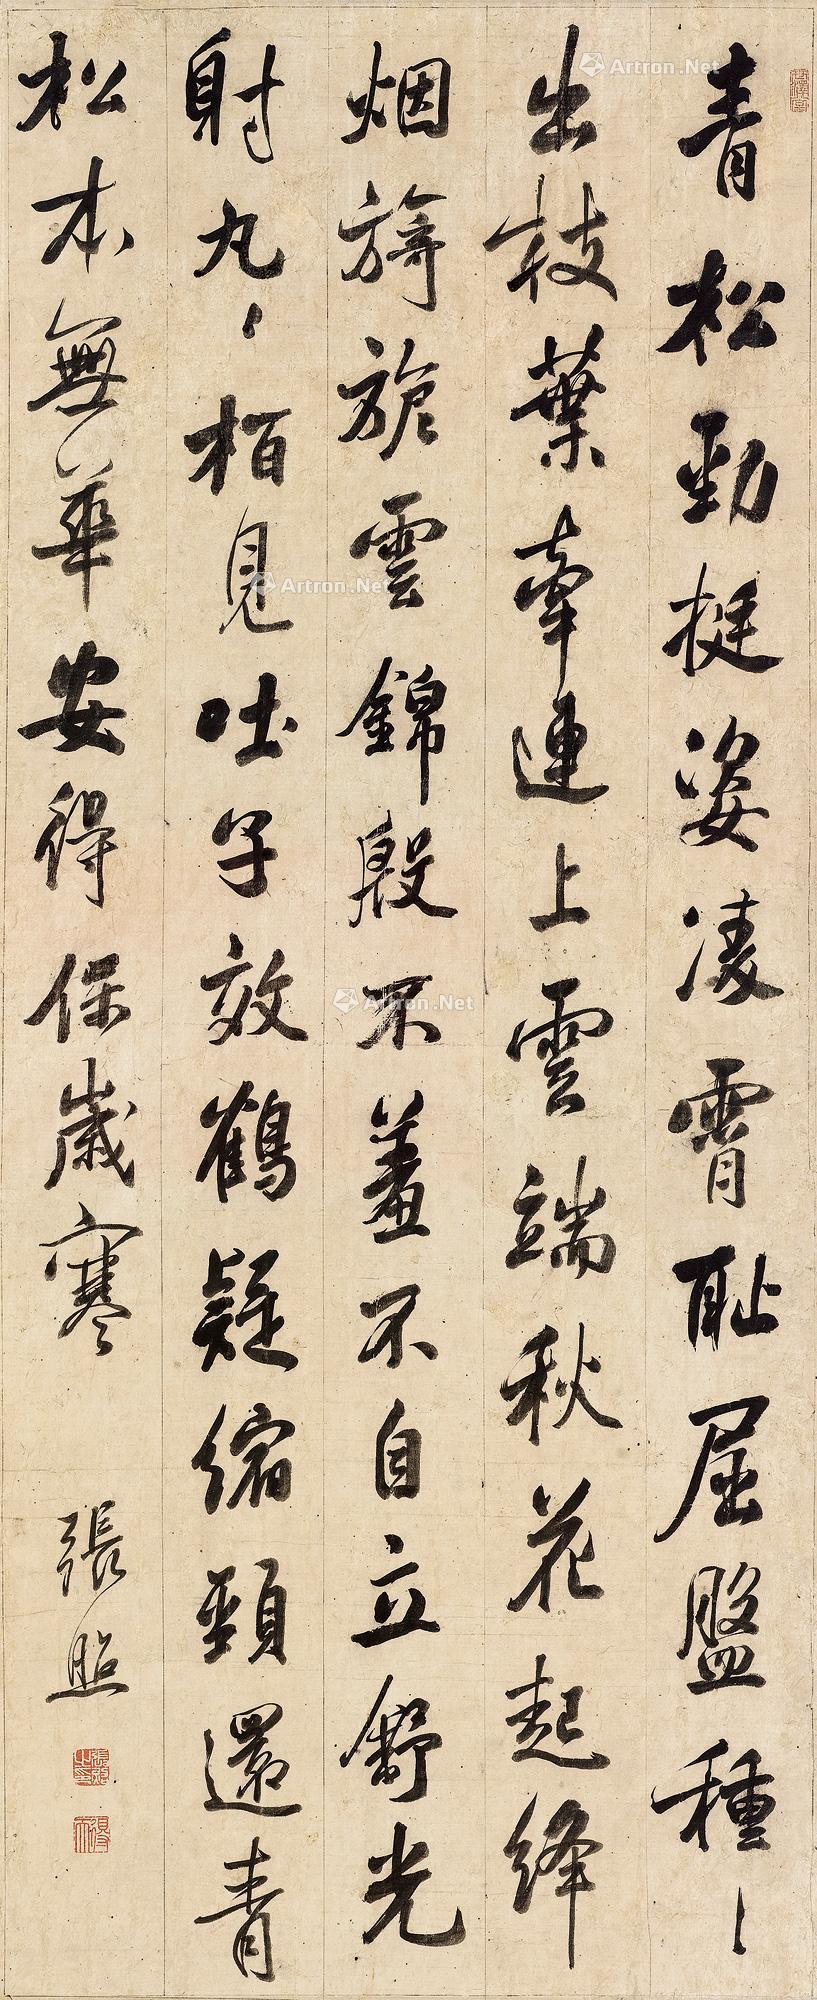 青松勁挺姿凌霄恥屈盤種〻
出枝葉牽連上雲端秋花起絳
烟旖旎雲錦殷不羞不自立舒光
射丸〻栢見吐子效鶴疑縮頸還青
松本無華安得保歲寒
張照
Artron.Net
Artron.Net
Artron.Net